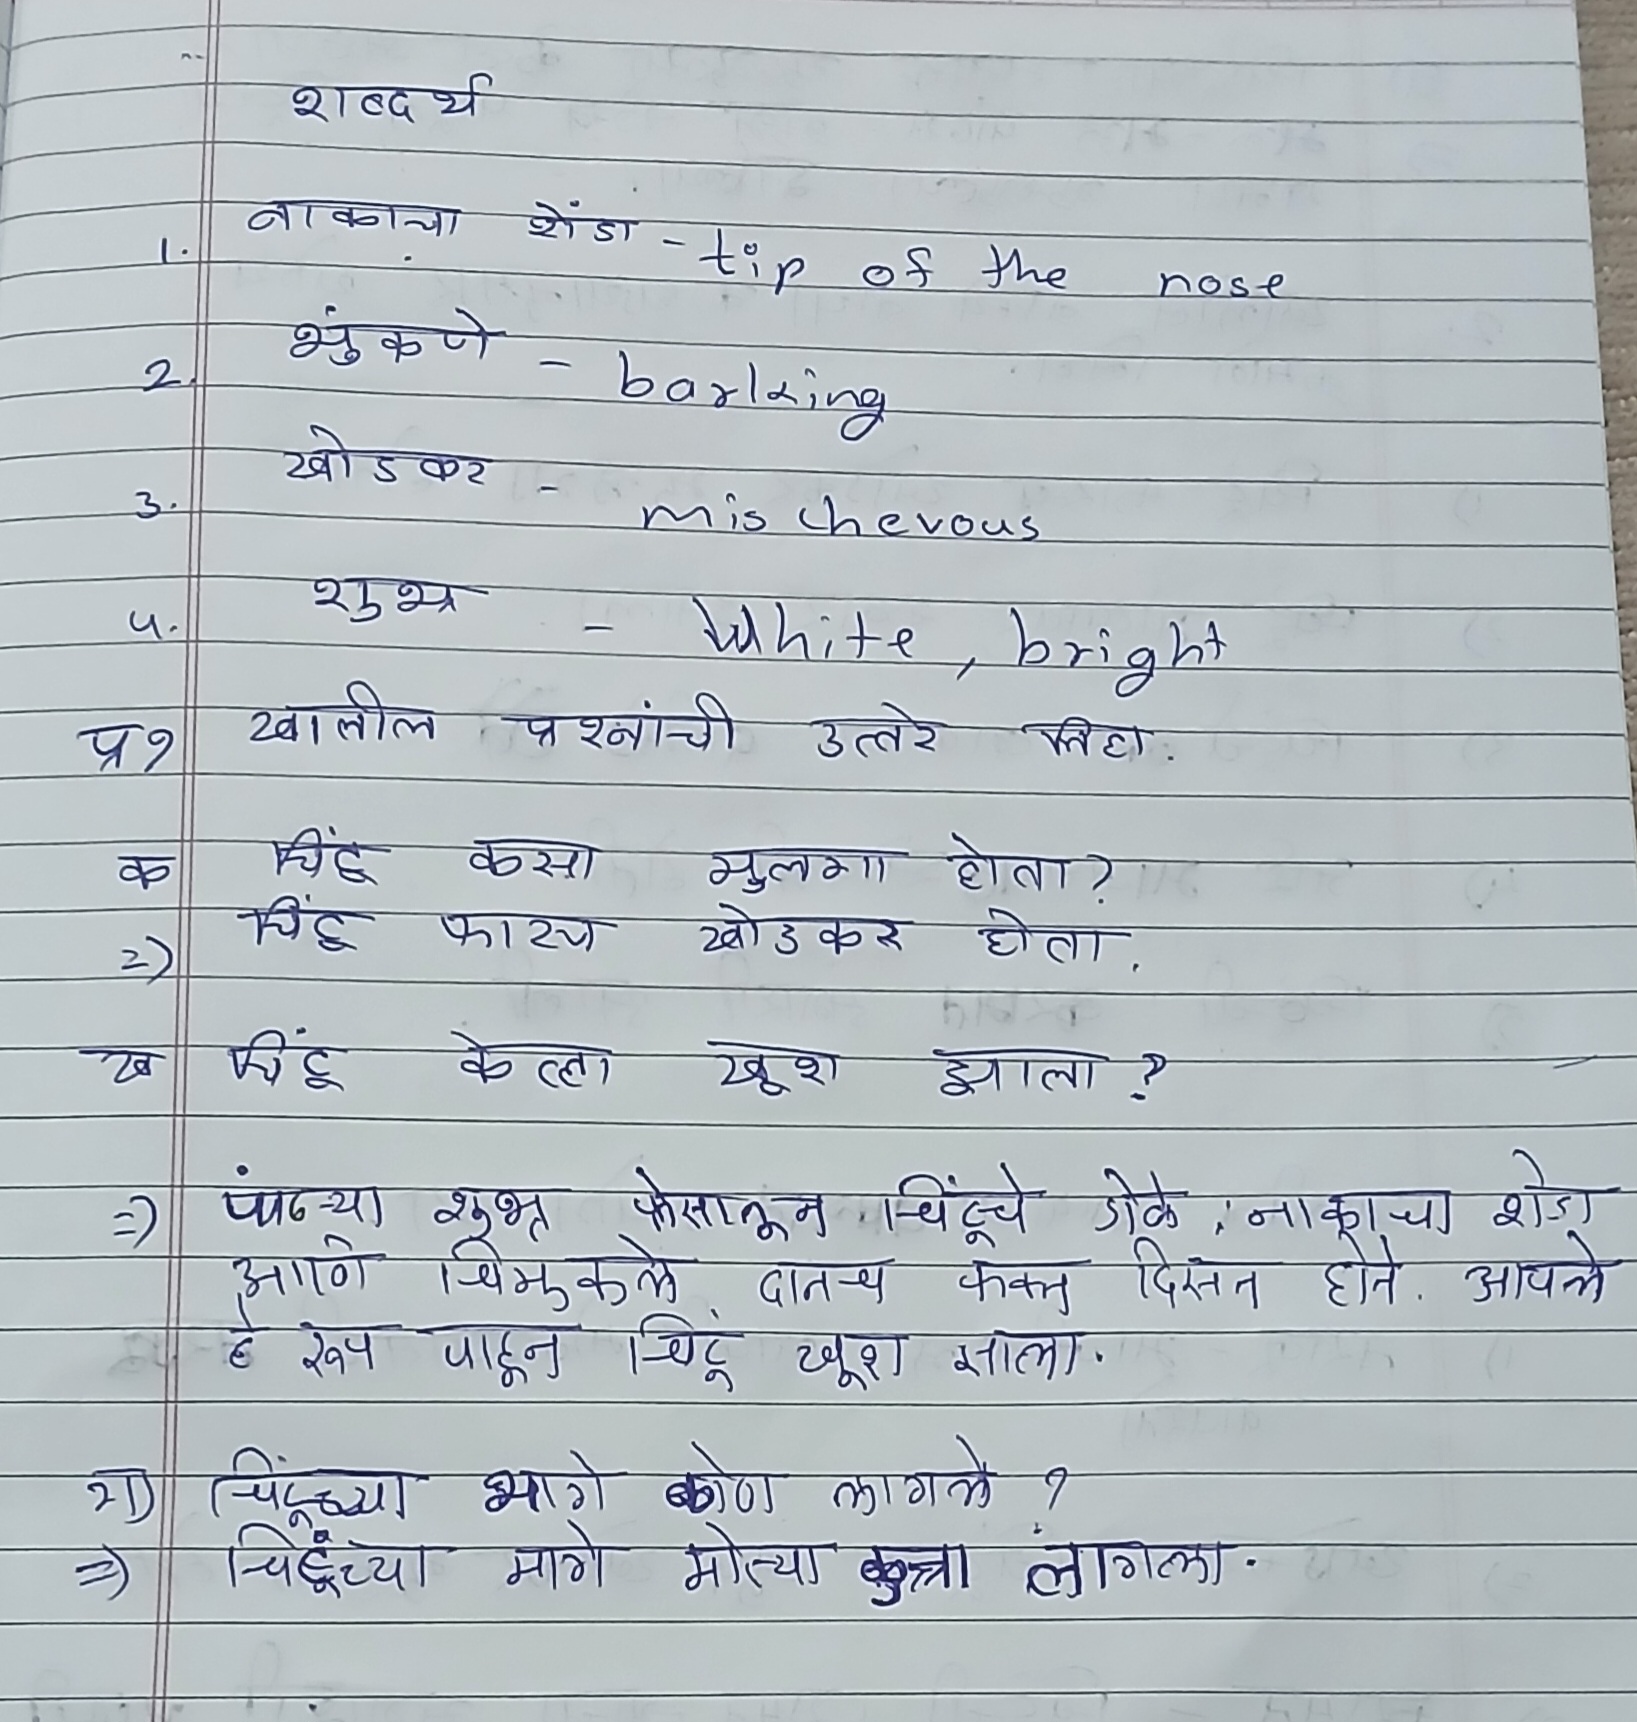 शब्दर्थ
1. नाकाचा शेंडा - tip of the nose
2. भुंकणे - barking
3. खोडकर - mischevous
4. शुभ्र - White, bright
प्र१ खालील प्रश्नांची उत्तरे लिहा.
क चिंटू कसा मुलगा होता?
=) चिंटू फारच खोडकर होता.
ख चिंटू केव्हा खूश झाला?
=) पांढऱ्या शुभ्र फेसातून चिंटूचे डोके, नाकाचा शेंडा
आणि चिमुकले दातच फक्त दिसत होते. आपले
हे रूप पाहून चिंटू खूश झाला.
ग) चिंटूच्या मागे कोण लागले?
=) चिंटूच्या मागे मोत्या कुत्रा लागला.